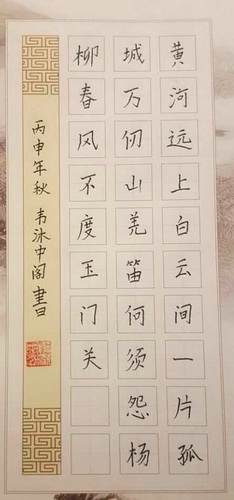 黄河远上白云间一片孤
城万仞山羌笛何须怨杨
柳春风不度玉门关
丙申年秋 韦沐中阁書